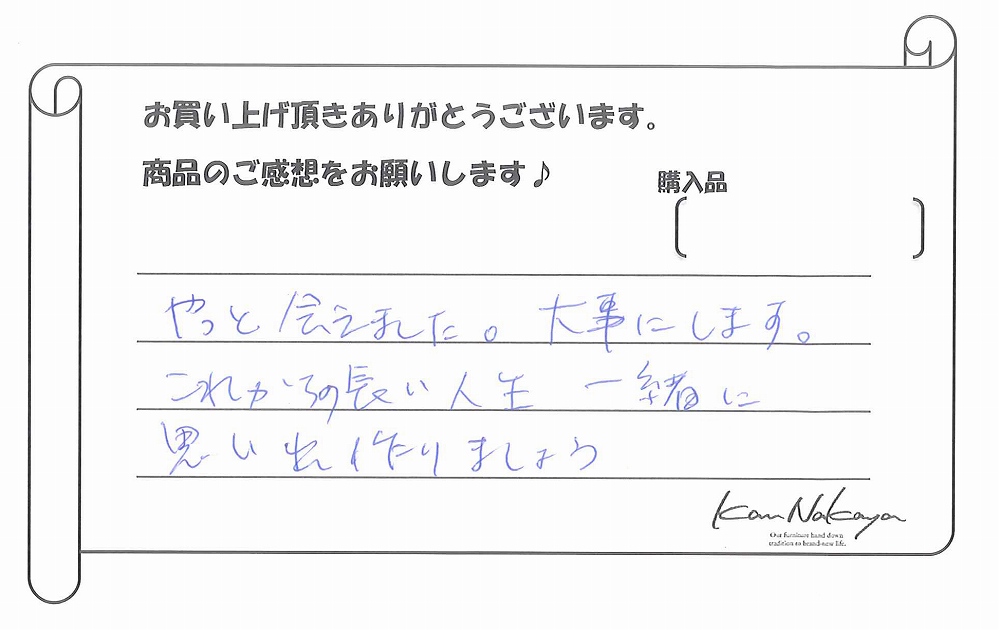 お買い上げ頂きありがとうございます。
商品のご感想をお願いします♪
購入品
やっと会えました。大事にします。
これからの長い人生 一緒に
思い出作りましょう
Kan Nakaya
Our furniture hand down
tradition to brand-new life.